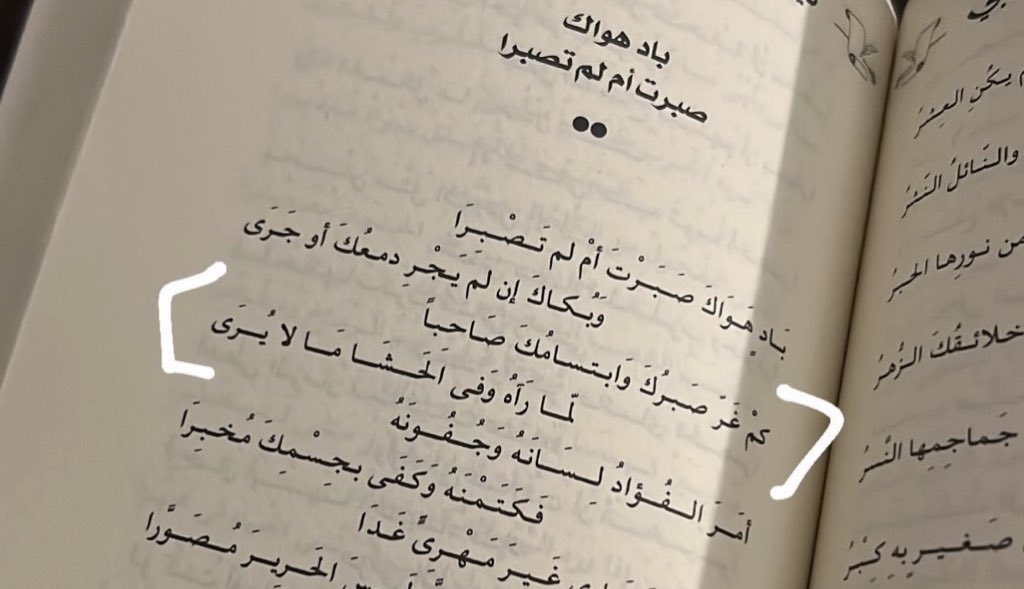 باد هواك
صبرت أم لم تصبرا
بَادٍ هَوَاكَ صَبَرْتَ أمْ لم تَصْبرَا
وَبُكاكَ إن لمَ يَجْرِ دمعُكَ أو جَرَى
كمْ غَرّ صَبرُكَ وَابتسامُكَ صَاحباً
لمّا رَآهُ وَفي الحَشَا مَا لا يُرَى
أمَرَ الفُؤادُ لِسَانَهُ وَجُفُونَهُ
فَكَتَمْنَهُ وَكَفَى بجِسْمِكَ مُخبرَا
غَيرَ مَهْريٍّ غَدَا
الحَريرَ مُصَوَّرا
م يكُنِ العِشرُ
والنّائلُ النّثرُ
من نورِها الحبرُ
خلائقُكَ الزُّهرُ
جَماجِمِها النّسرُ
صَغيرٍ بهِ كِبْرُ